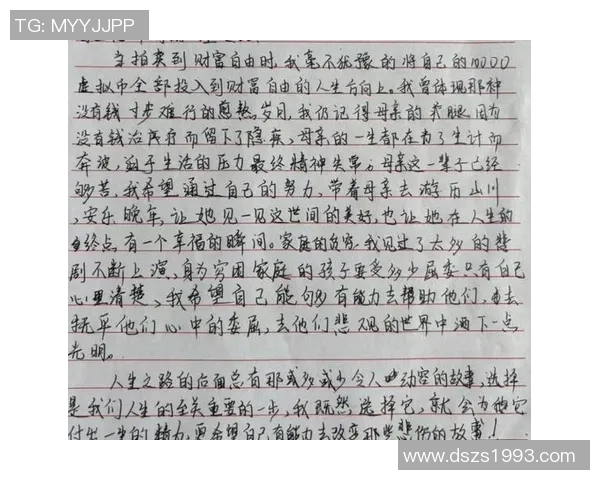 TG: MYYJJPP
当拍卖到财富自由时,我毫不犹豫的将自己的10000
虚拟币全部投入到财富自由的人生方向上。我曾体现那种
没有钱寸步难行的岁月,我仍记得母亲的腿因为
没有钱治疗而留下了隐疾,母亲的一生都在为了生计而
奔波,迫于生活的压力最终精神失常。母亲这一辈子已经
够苦,我希望通过自己的努力,带着母亲去游历山川
,安乐晚年,让她见一见这世间的美好,也让她在人生的
终点有一个幸福的瞬间。家庭的贫穷,我见过了太多的悲
剧不断上演,身为穷困家庭的孩子要受多少屈委只有自己
心里清楚,我希望自己能够有能力去帮助他们,去
抚平他们心中的委屈,去他们悲观的世界中洒下一点
光明。
人生之路的后面总有那或多或少令人动容的故事,选择
是我们人生的至关重要的一步,我既然选择它,就会为他它
付出一生的精力,更希望自己有能力去改变那些悲伤的故事!
www.dszs1993.com